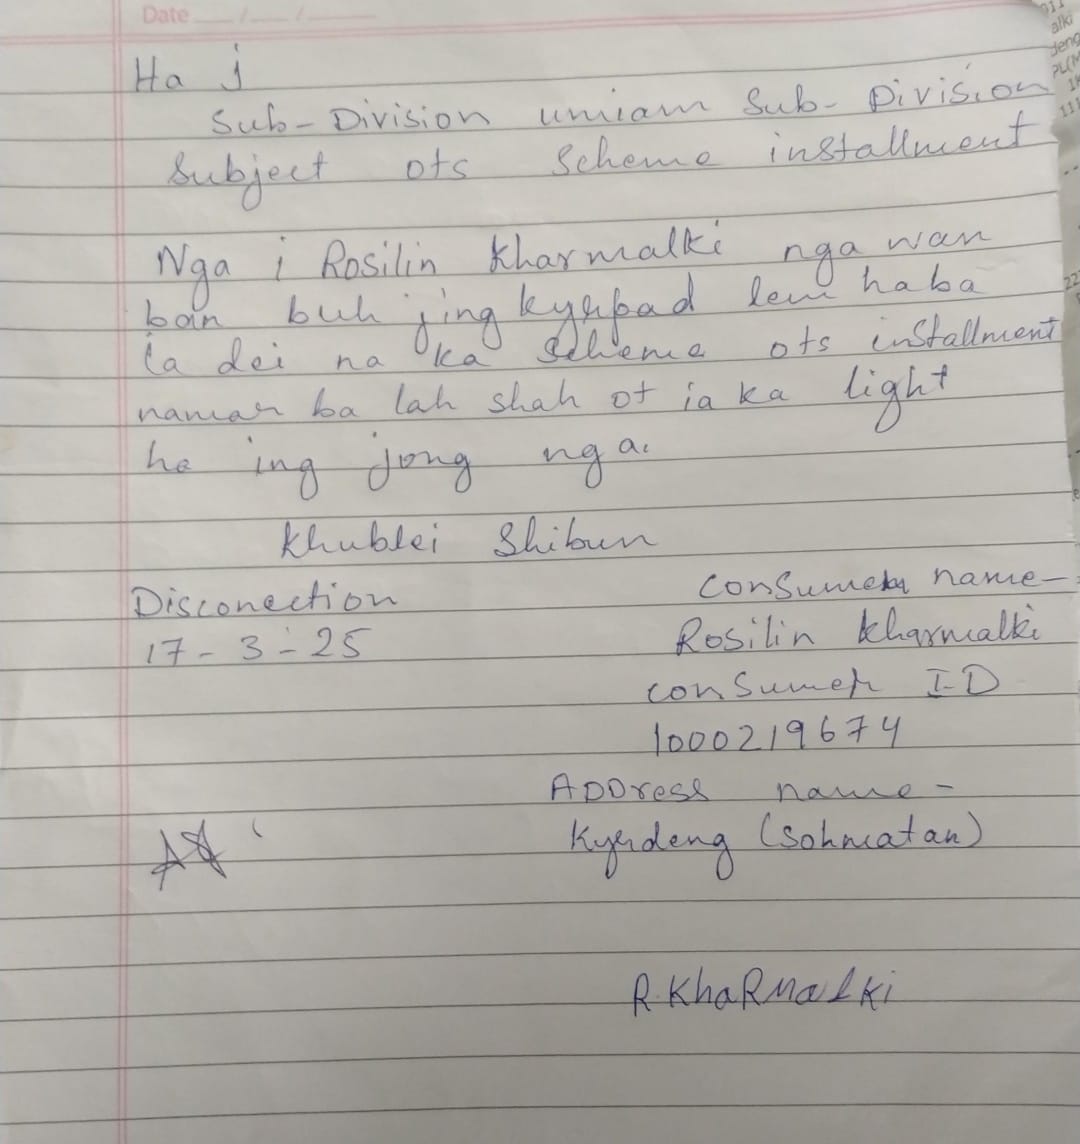 Date ___/___/___
Ha i
Sub-Division umiam Sub-Division
Subject ots Scheme installment
Nga i Rosilin Kharmalki nga wan
ban buh jingkyrpad lem haba
ia dei na ka Scheme ots installment
namar ba lah shah ot ia ka light
ha ing jong nga.
Khublei Shibun
Disconection
17-3-25
Consumer name-
Rosilin Kharmalki
Consumer I-D
1000219674
Address name-
Kyrdeng (Sohmatan)
R. KhaRMalki